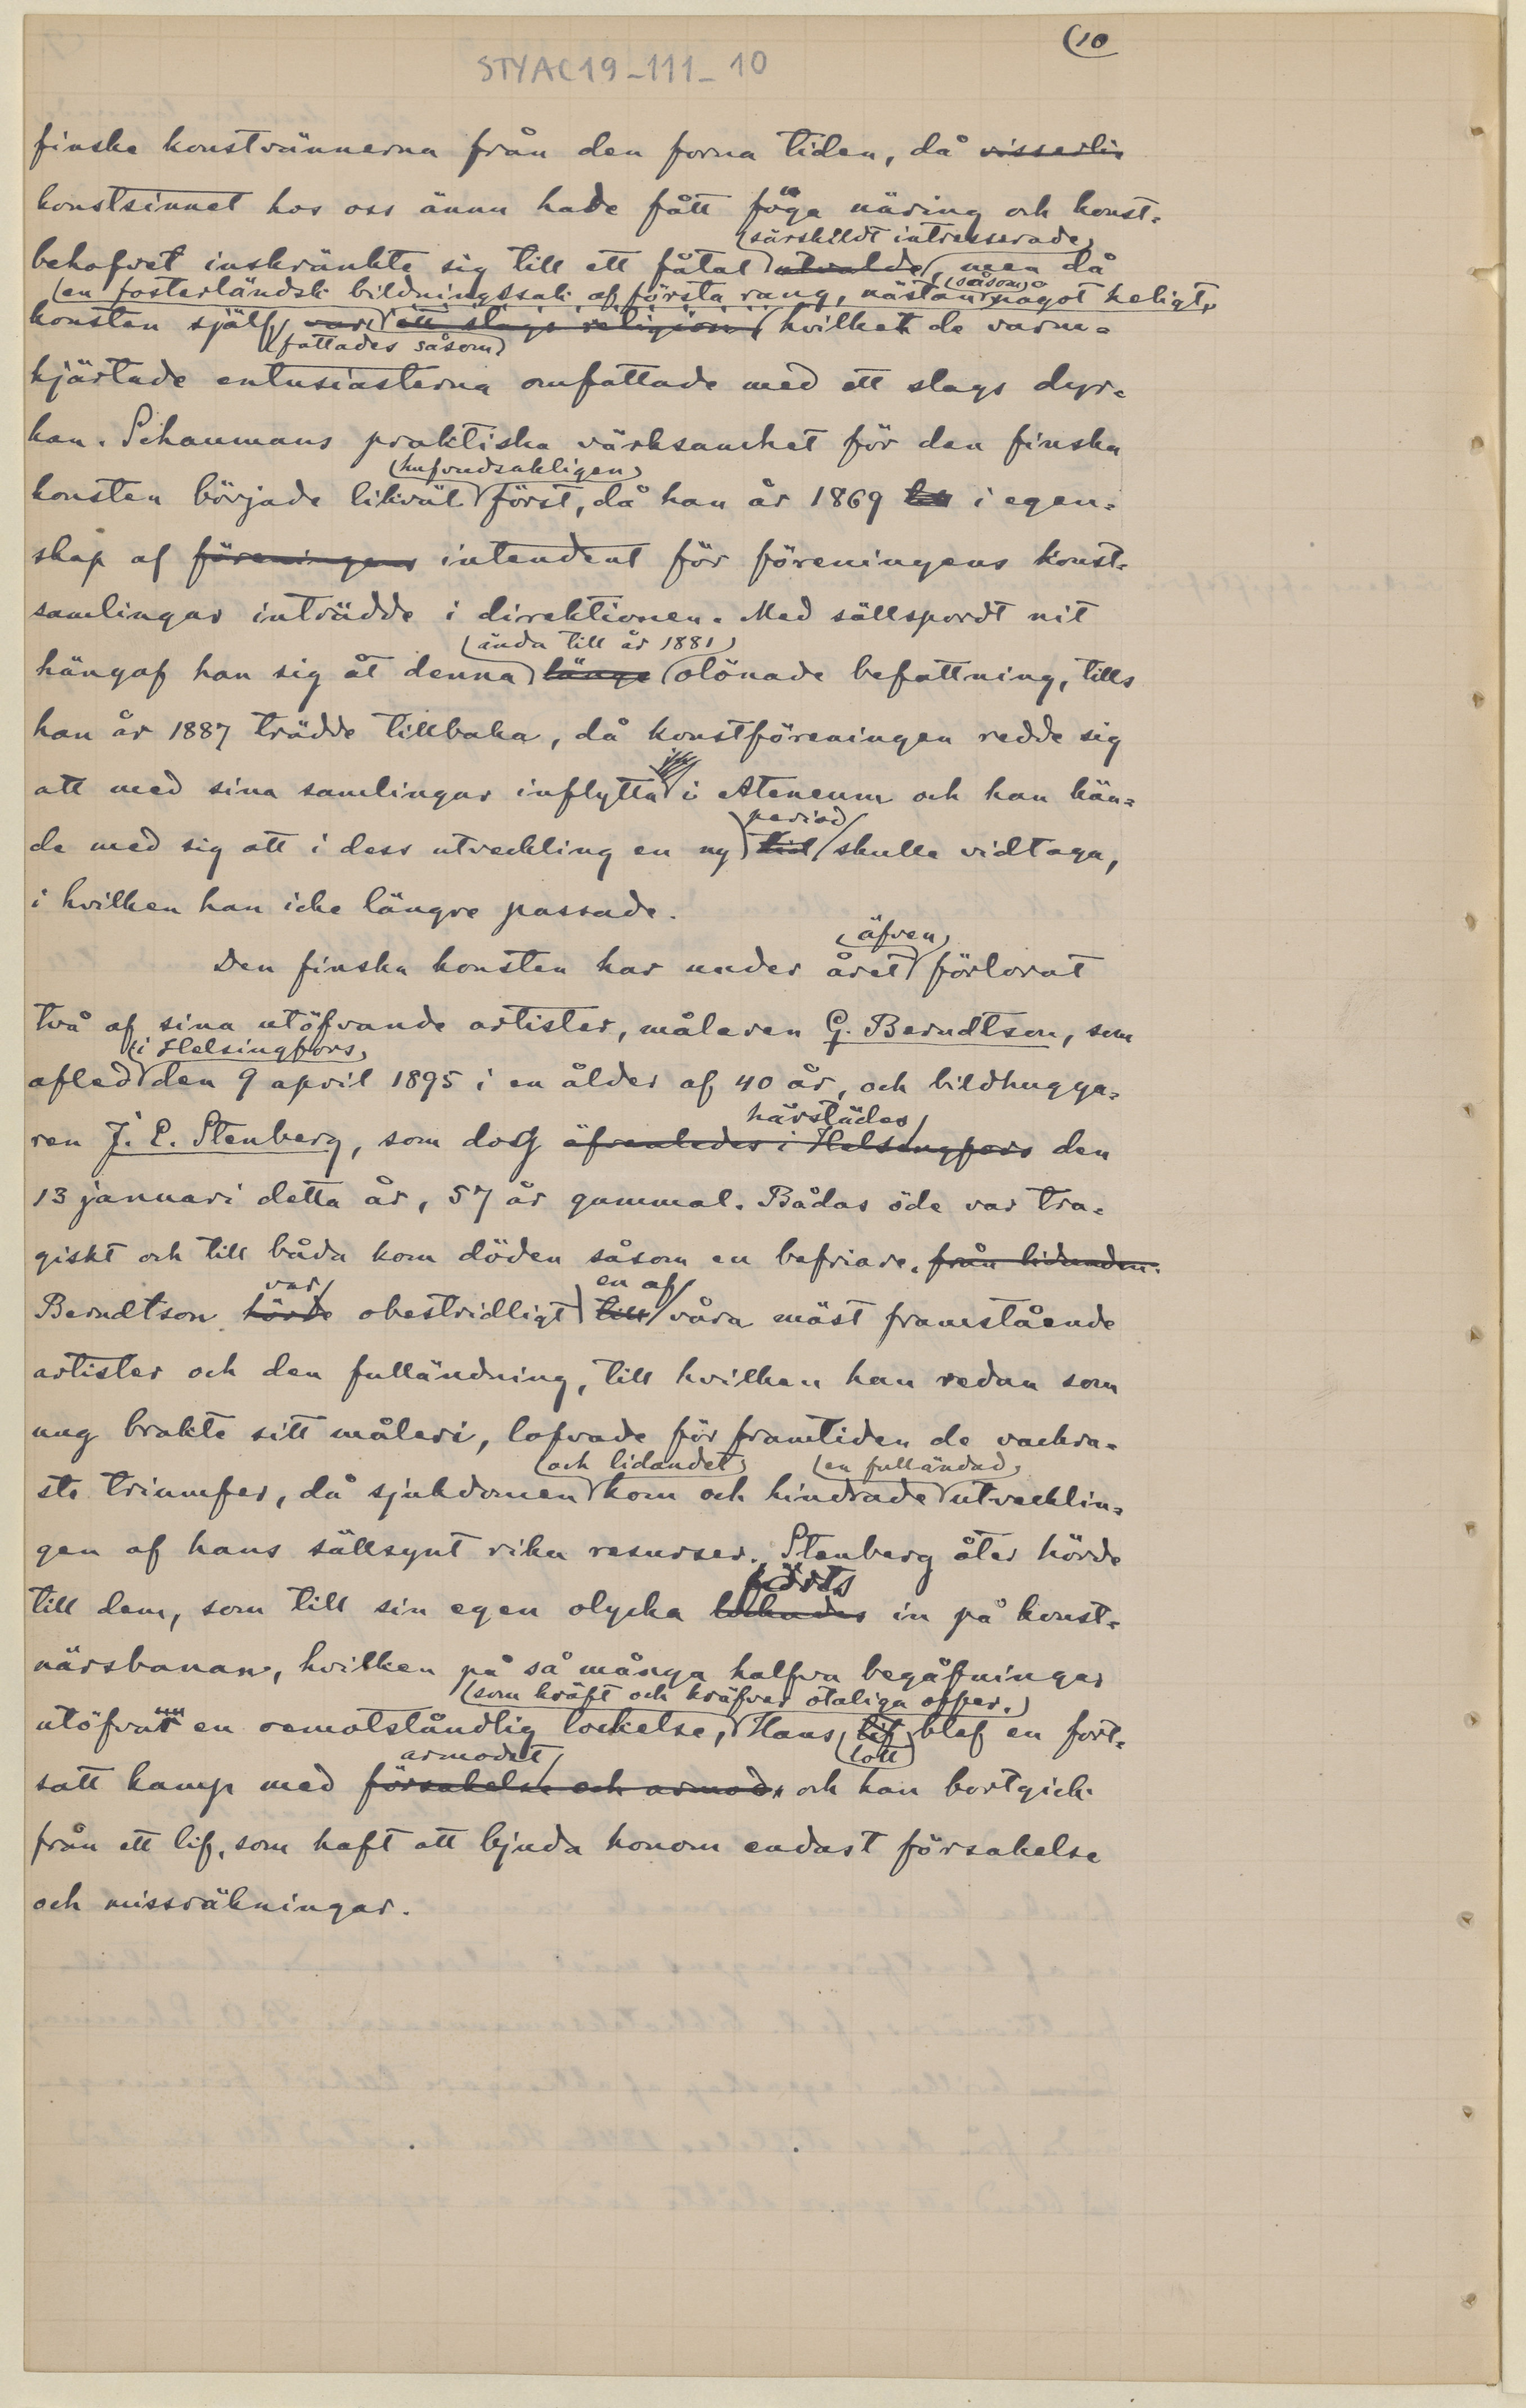 (10
STYAC19-111-10
finske konstvännerna från den forna tiden, då visserli
konstsinnet hos oss ännu hade fått föga näring och konst-
(särskildt intresserade)
behofvet inskränkte sig till ett fåtal utvalde, men då
(en fosterländsk bildningssak af första rang, nästan (såsom) något heligt,
konsten själf var ett slags religion hvilket de varm-
(fattades såsom)
hjärtade entusiasterna omfattade med ett slags dyr-
kan. Schaumans praktiska värksamhet för den finska
(hufvudsakligen)
konsten började likväl först, då han år 1869 i egen-
skap af föreningens intendent för föreningens konst-
samlingar inträdde i direktionen. Med sällspordt nit
(ända till år 1881)
hängaf han sig åt denna länge olönade befattning, tills
han år 1887 trädde tillbaka, då konstföreningen redde sig
att med sina samlingar inflytta i Ateneum och han kän-
period
de med sig att i dess utveckling en ny tid skulle vidtaga,
i hvilken han icke längre passade.
(äfven)
Den finska konsten har under året förlorat
två af sina utöfvande artister, målaren G. Berndtson, som
(i Helsingfors)
afled den 9 april 1895 i en ålder af 40 år, och bildhugga-
härstädes
ren J. E. Stenberg, som dog äfvenledes i Helsingfors den
13 januari detta år, 57 år gammal. Bådas öde var tra-
giskt och till båda kom döden såsom en befriare. från lidanden.
var en af
Berndtson hörde obestridligt till våra mäst framstående
artister och den fulländning, till hvilken han redan som
ung brakte sitt måleri, lofvade för framtiden de vackra-
(och lidandet) (en fulländad)
ste triumfer, då sjukdomen kom och hindrade utvecklin-
gen af hans sällsynt rika resurser. Stenberg åter hörde
förts
till dem, som till sin egen olycka lockades in på konst-
närsbanan, hvilken på så många halfva begåfningar
(som kräft och kräfver otaliga offer.)
utöfvat en oemotståndlig lockelse, Hans lif blef en fort-
armodet (lott)
satt kamp med försakelse och armod, och han bortgick
från ett lif, som haft att bjuda honom endast försakelse
och missräkningar.